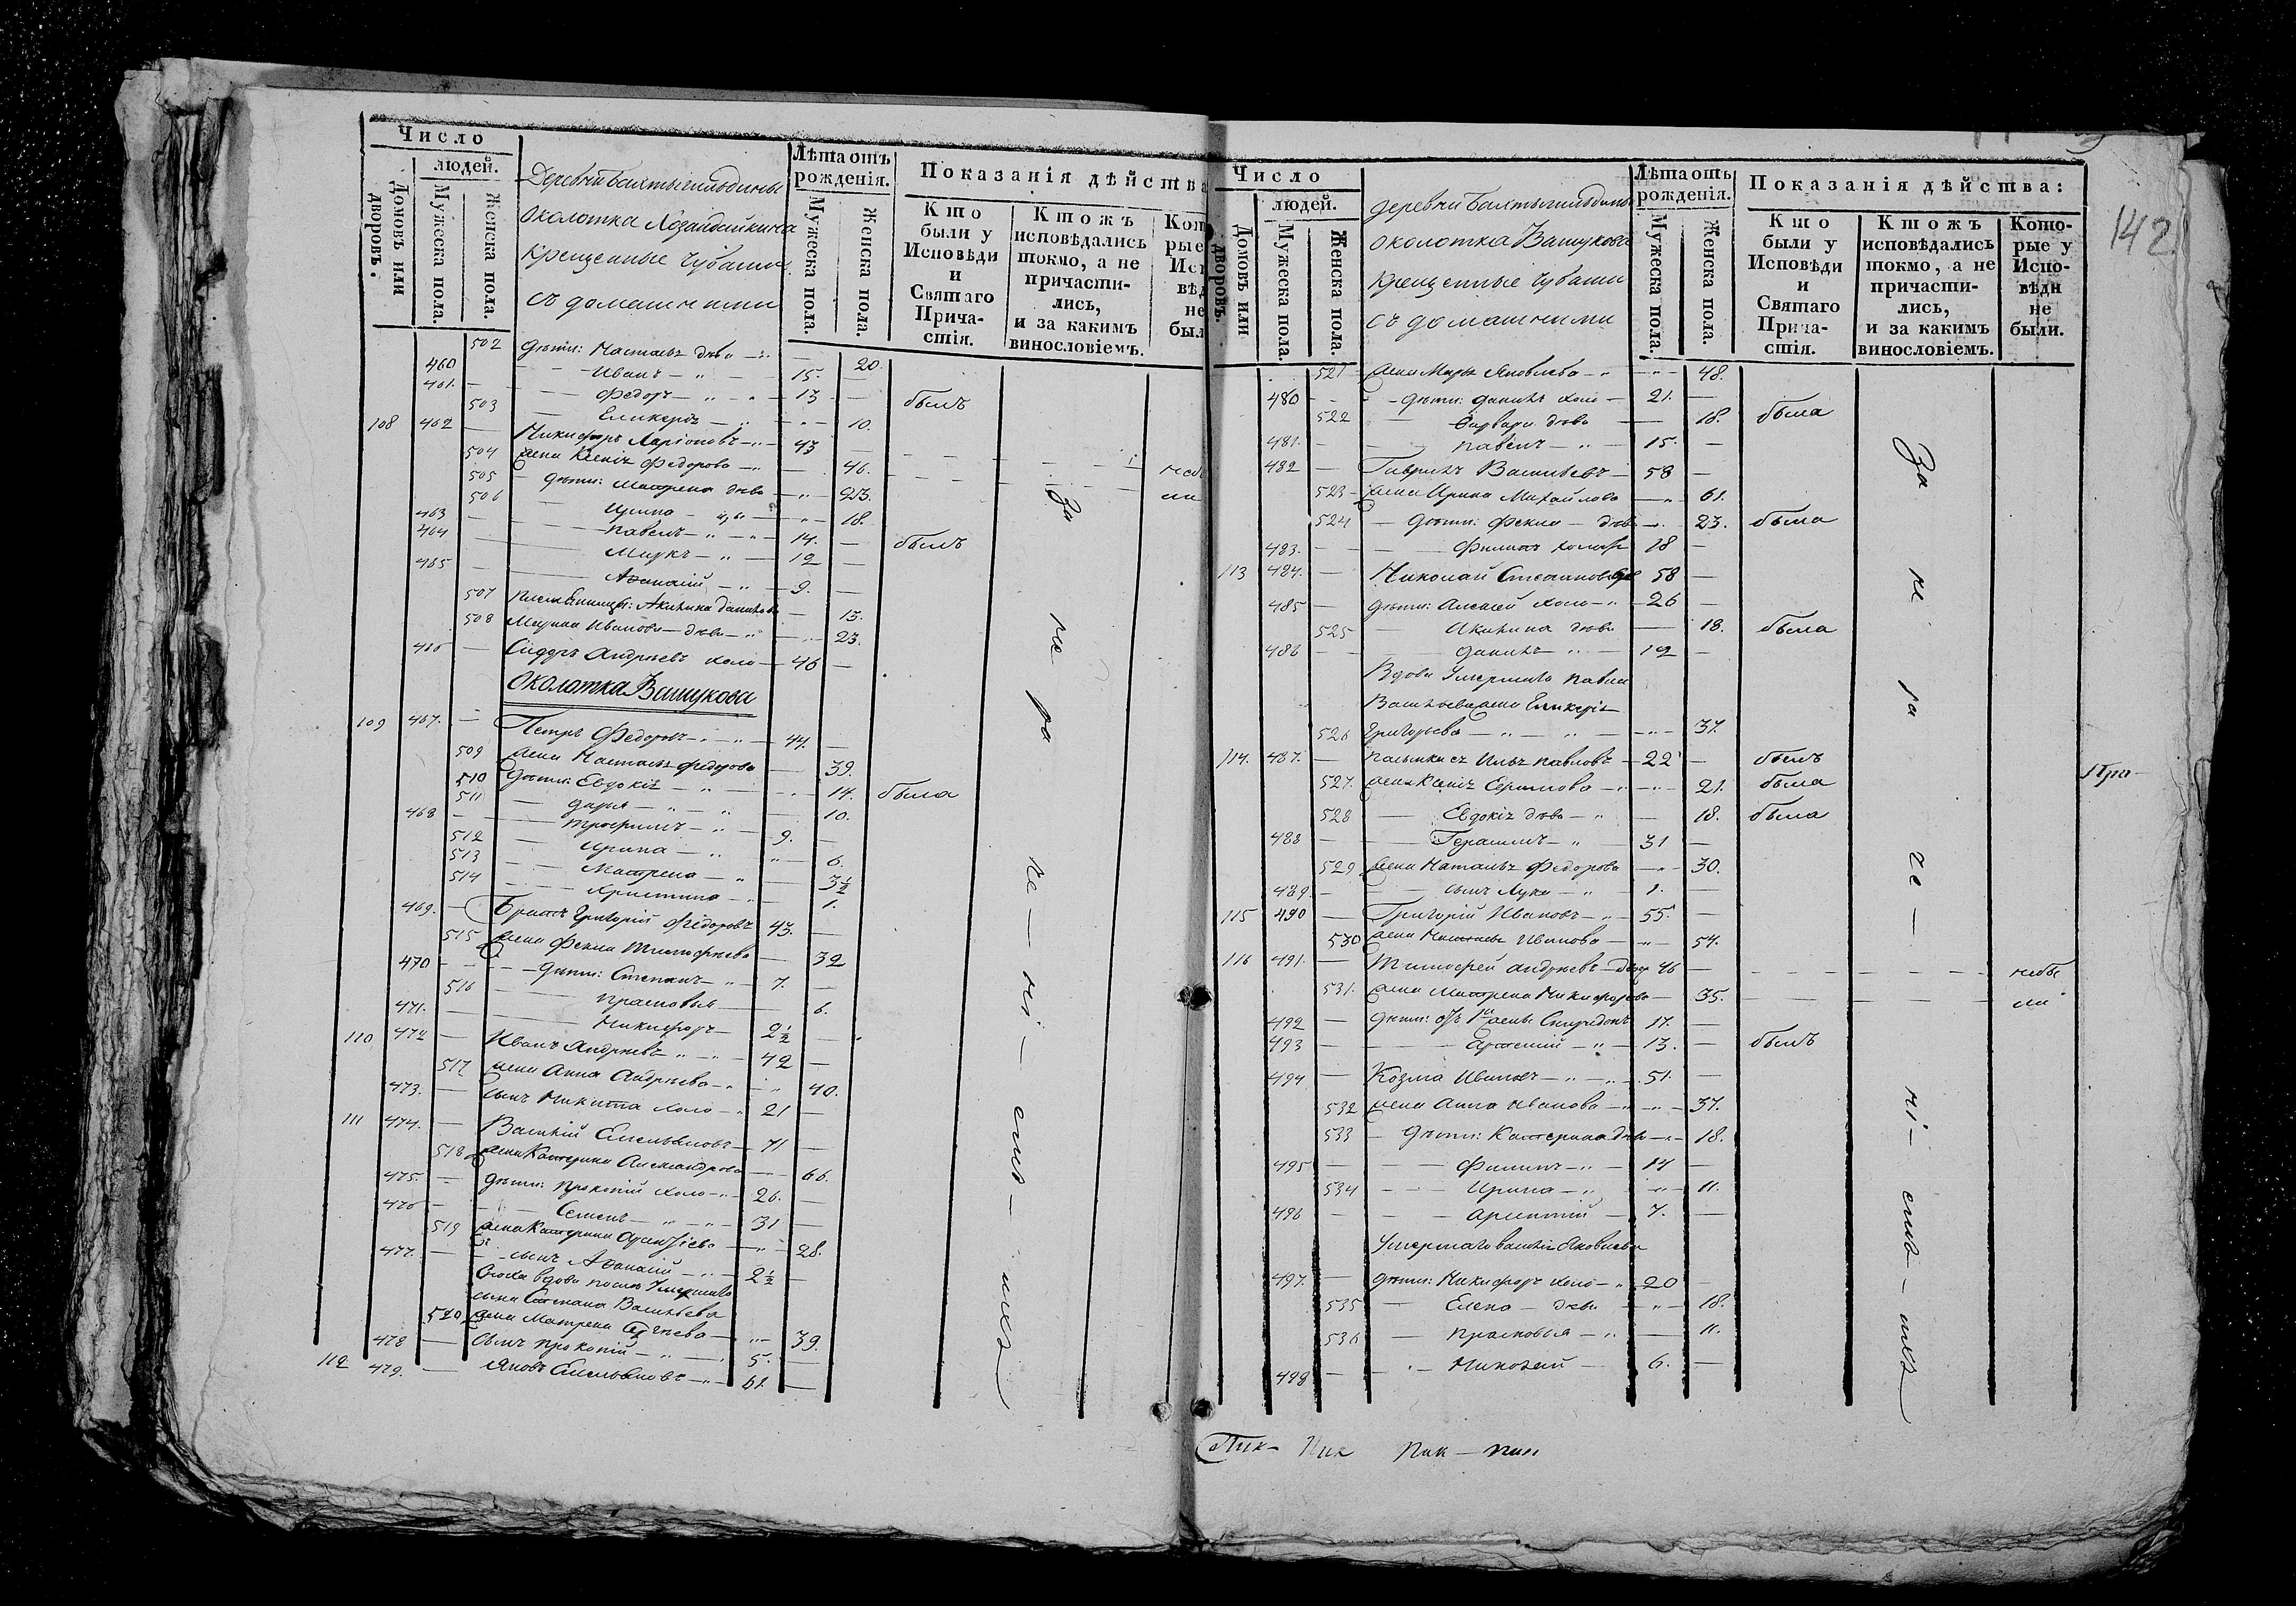 Число
людей.
Домовъ или дворовъ.
Мужеска пола.
Женска пола.
Деревни Бахтыгильдины
околотка Хозандайкина
крещенные чуваши
съ домашними
Лѣта отъ рожденія.
Мужеска пола.
Женска пола.
Показанія дѣйства
Кто были у Исповѣди и Святаго Причастія.
Ктожъ исповѣдались токмо, а не причастились, и за какимъ винословіемъ.
502 дѣти: Насталья дѣв 20.
460 Иванъ 15.
461. Федоръ 13 былъ
503 Гликерія 10.
108 462 Никифоръ Ларіоновъ 43
504 жена Ксенія Федорова 46.
505 дѣти: Матрена дѣва 23.
506 Ирина 18.
463 Павелъ 14. былъ
464 Маркъ 12
465 Афанасій 9.
507 племянницы: Акилина Данилова 13.
508 Марина Иванова дѣва 23.
466 Сидоръ Андреевъ холо 46
околотка Вашукова
109 467. Петръ Федоровъ 44.
509 жена Насталья Федорова 39.
510 дѣти: Евдокія 14. была
511 Дарья 10.
468 Трофимъ 9.
512 Ирина 6.
513 Матрена 3½
514 Христина 1.
469. Братъ Григорій Федоровъ 43.
515 жена Фекла Тимофѣева 32
470 дѣти: Степанъ 7.
516 Прасковья 6.
471. Никифоръ 2½
110 472 Иванъ Андреевъ 42
517 жена Анна Андреева 40.
473. сынъ Никита холо 21
111 474. Василій Емельяновъ 71
518 жена Катерина Александрова 66.
475. дѣти: Прокопій холо 26.
476 Семенъ 31
519 жена Катерина 28.
477. сынъ Афанасій 2½
Сноха вдова послѣ умершаго
сына Степана Васильева
520 жена Матрена 39.
478 сынъ Прокопій 5.
112 479. Яковъ Емельяновъ 61.
За не ра че — ні — емъ — ихъ
Число
людей.
Домовъ или дворовъ.
Мужеска пола.
Женска пола.
деревни Бахтыгильдины
околотка Вашукова
крещенные чуваши
съ домашними
Лѣта отъ рожденія.
Мужеска пола.
Женска пола.
Показанія дѣйства:
Кто были у Исповѣди и Святаго Причастія.
Ктожъ исповѣдались токмо, а не причастились, и за какимъ винословіемъ.
Которые у Исповѣди не были.
142
521 жена Марья Яковлева 48.
480 дѣти: Данилъ холо 21.
522 Варвара дѣва 18. была
481. Павелъ 15.
482 Гаврилъ Васильевъ 58
523 жена Ирина Михайлова 61.
524 дѣти: Фекла дѣв 23. была
483. Филипъ холо 18
113 484. Николай Степановъ 58
485 дѣти: Алексей холо 26
525 Акилина дѣва 18. была
486 Данилъ 12
Вдова Умершаго Павла
Васильева жена Гликерія
526 Григорьева 37.
114. 487. пасынки съ Илья Павловъ 22 былъ
527. жена Ксенія 21. была
528 Евдокія дѣва 18. была
488 Герасимъ 31
529 жена Наталья Федорова 30.
489. сынъ Лука 1.
115 490 Григорій Ивановъ 55.
530 жена Насталья Иванова 54.
116 491. Тимофей Андреевъ 46 небы
531. жена Матрена Никифорова 35. ли
492 дѣти: отъ 1й жены Спиридонъ 17.
493 Артемій 13. былъ
494 Козма Ивановъ 51.
532 жена Анна Иванова 37.
533 дѣти: Катерина дѣв 18.
495 Филипъ 14
534 Ирина 11.
496 Арсентій 7.
Умершаго Василія Яковлева
497. дѣти: Никифоръ холо 20
535 Елена дѣва 18.
536 Прасковья 11.
498 Николай 6.
За не ра че — ні — емъ — ихъ
Пра-